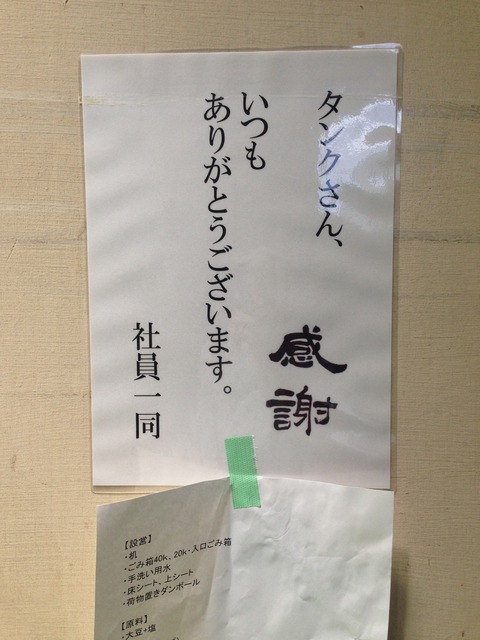 タンクさん、
いつも
ありがとうございます。
感謝
社員一同
【設営】
・机
・ごみ箱40k、20k・入口ごみ箱
・手洗い用水
・床シート、上シート
・荷物置きダンボール
【原料】
・大豆+塩